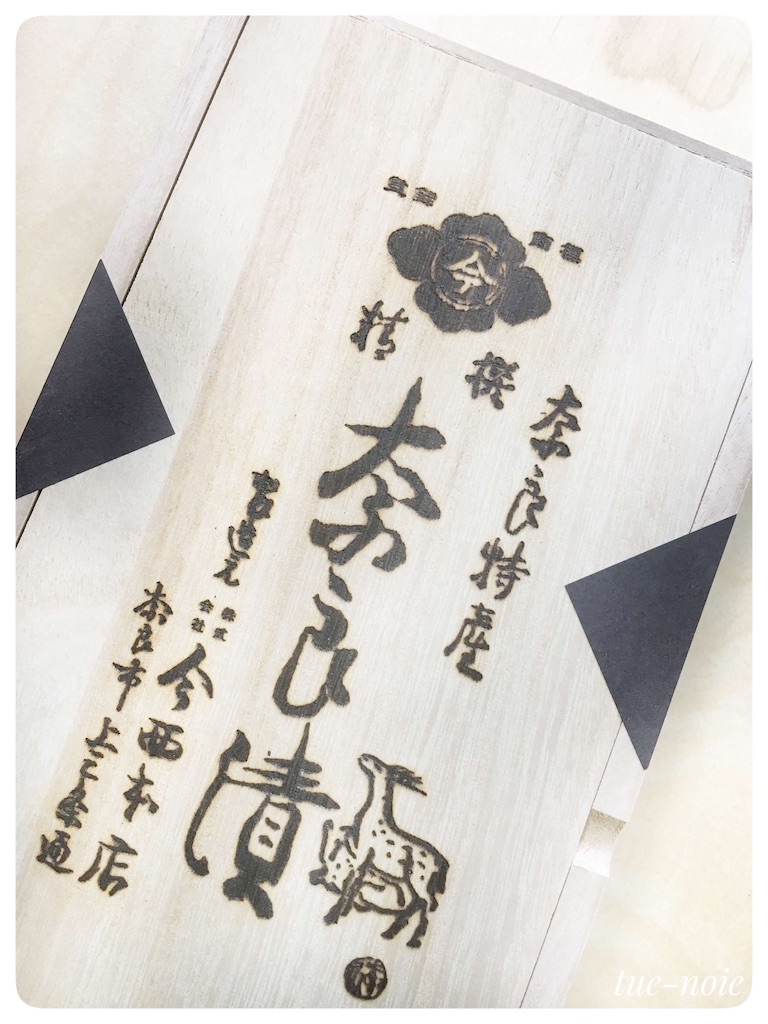 登録
商標
今
精撰
奈良特産
奈良漬
製造元
株式会社
今西本店
奈良市上三条通
tue-noie